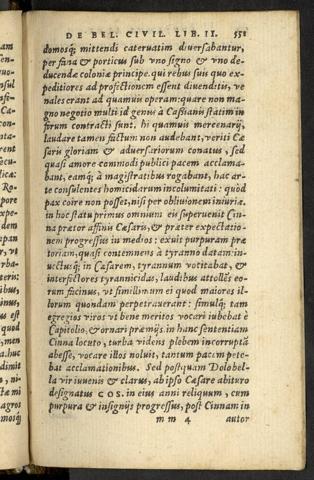 DE BEL. CIVIL. LIB. II. 551
domosq; mittendi cateruatim diuersabantur,
per fana & porticus sub vno signo & vno de-
ducendæ coloniæ principe. qui rebus suis quo ex-
peditiores ad profectionem essent diuenditis, ve
nales erant ad quamuis operam: quare non ma-
gno negotio multi id genus à Cassianis statim in
forum contracti sunt. hi quamuis mercenarij,
laudare tamen factum non audebant, veriti Cæ
saris gloriam & aduersariorum conatus, sed
quasi amore commodi publici pacem acclama-
bant, eamq; à magistratibus rogabant, hac ar-
te consulentes homicidarum incolumitati: quòd
pax coire non posset, nisi per obliuionem iniuriæ.
in hoc statu primus omnium eis superuenit Cin-
na prætor affinis Cæsaris, & præter expectatio-
nem progressus in medios: exuit purpuram præ
toriam, quasi contemnens à tyranno datam: in-
uectusq; in Cæsarem, tyrannum vocitabat, &
interfectores tyrannicidas, laudibus attollēs eo-
rum facinus, vt simillimum ei quod maiores il-
lorum quondam perpetrauerant: simulq; tam
egregios viros vt bene meritos vocari iubebat è
Capitolio, & ornari præmijs. in hanc sententiam
Cinna locuto, turba videns plebem incorruptā
abesse, vocare illos noluit, tantum pacem pete-
bat acclamationibus. Sed postquam Dolobel-
la vir iuuenis & clarus, ab ipso Cæsare abituro
designatus COS. in eius anni reliquum, cum
purpura & insignijs progressus, post Cinnam in
m m 4 autor